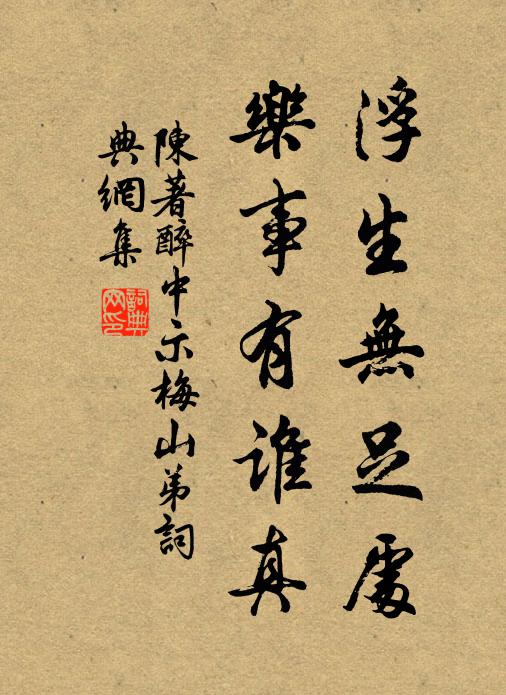 浮生無足處
樂事有誰真
陳著醉中示梅山弟詞
典網集
詞典網印